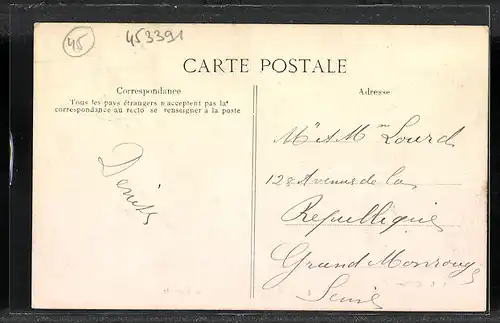 45
453391
CARTE POSTALE
Correspondance
Tous les pays étrangers n'acceptent pas la
correspondance au recto se renseigner à la poste
Adresse
Mr et Mme Lourd
128 Avenue de la
Republlique
Grand Monrouge
Seine